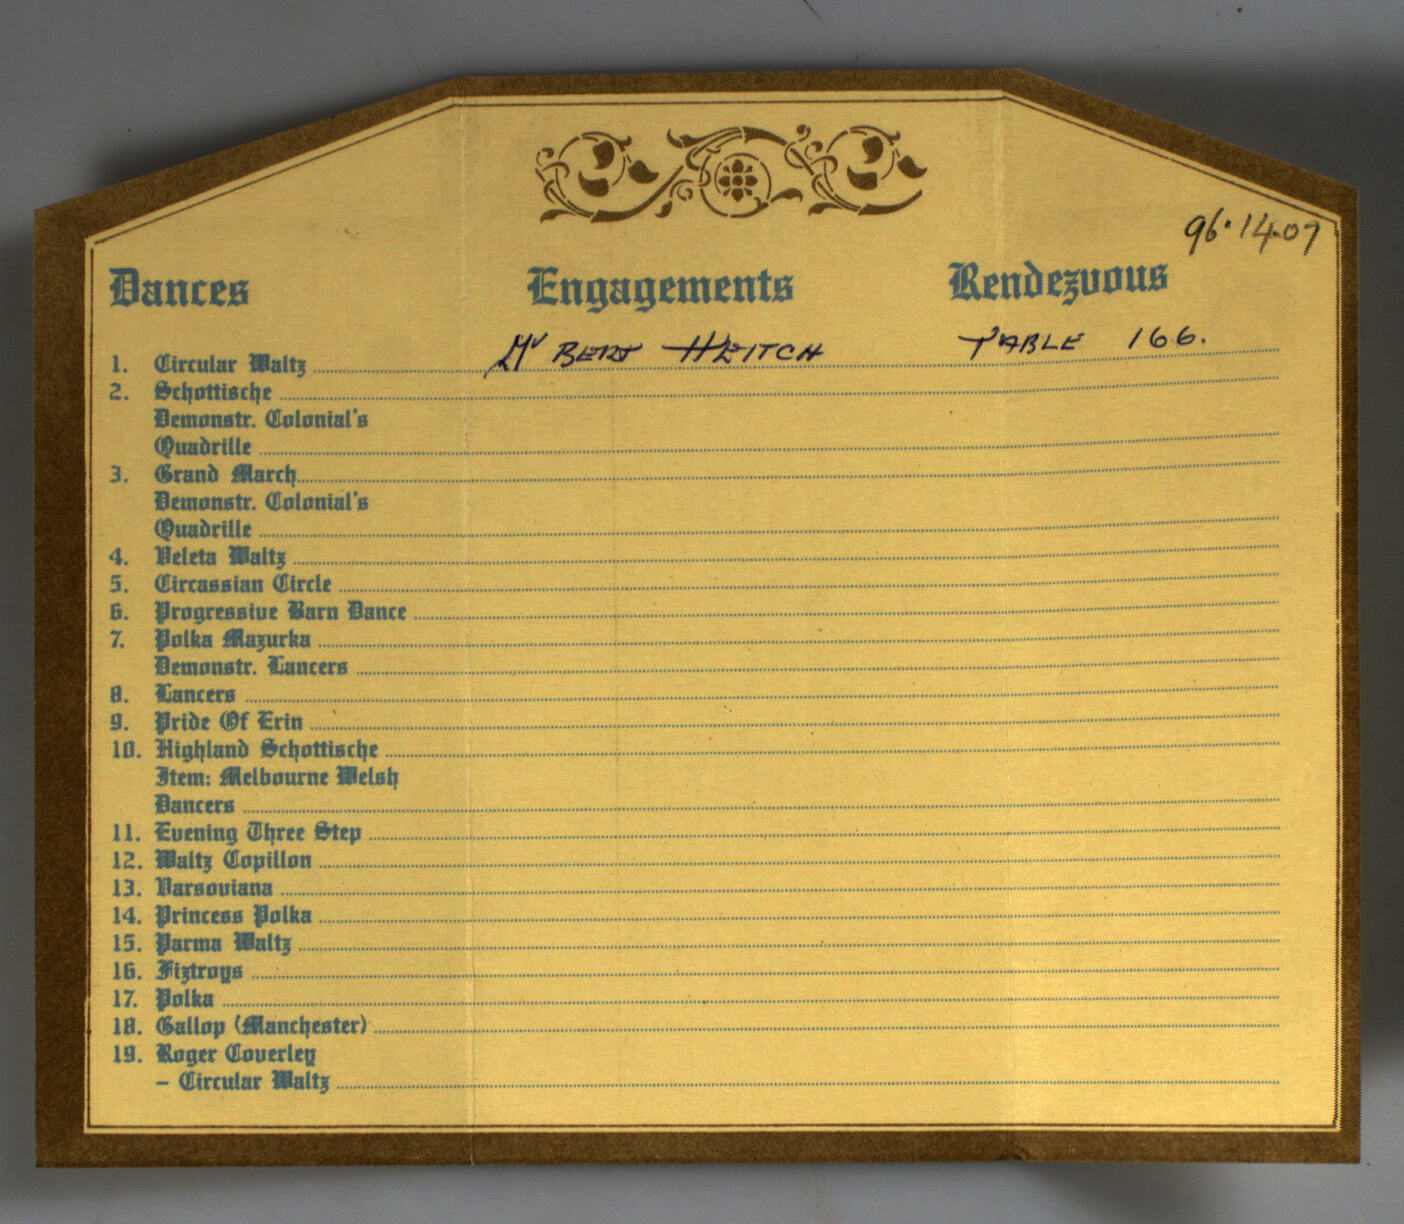 96.14.07
Dances Engagements Rendezvous
1. Circular Waltz Mr BERT HEITCH TABLE 166.
2. Schottische
Demonstr. Colonial's
Quadrille
3. Grand March
Demonstr. Colonial's
Quadrille
4. Veleta Waltz
5. Circassian Circle
6. Progressive Barn Dance
7. Polka Mazurka
Demonstr. Lancers
8. Lancers
9. Pride Of Erin
10. Highland Schottische
Item: Melbourne Welsh
Dancers
11. Evening Three Step
12. Waltz Copillon
13. Varsoviana
14. Princess Polka
15. Parma Waltz
16. Fiztroys
17. Polka
18. Gallop (Manchester)
19. Roger Coverley
– Circular Waltz